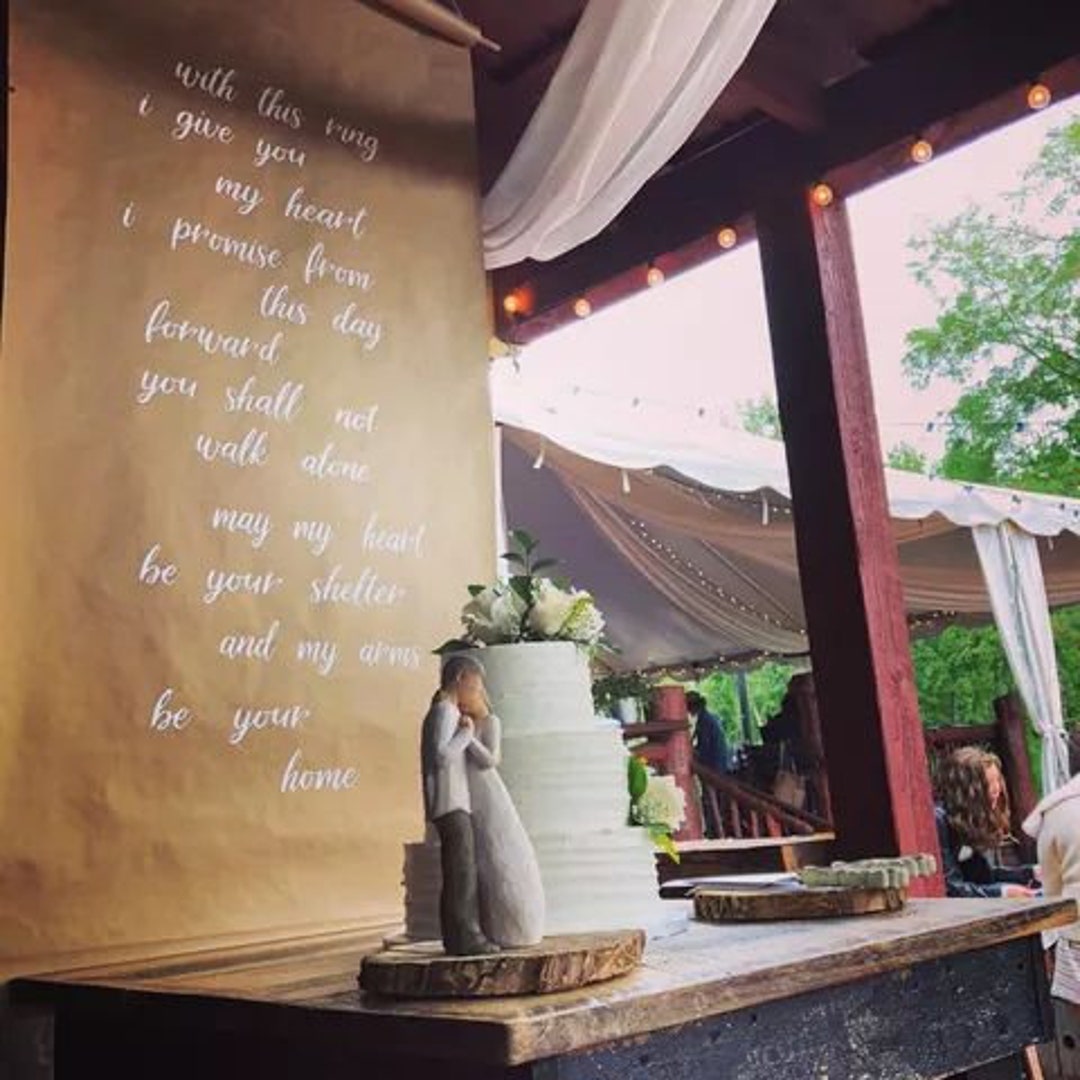 with this ring
i give you
my heart
i promise from
this day
forward
you shall not
walk alone
may my heart
be your shelter
and my arms
be your
home